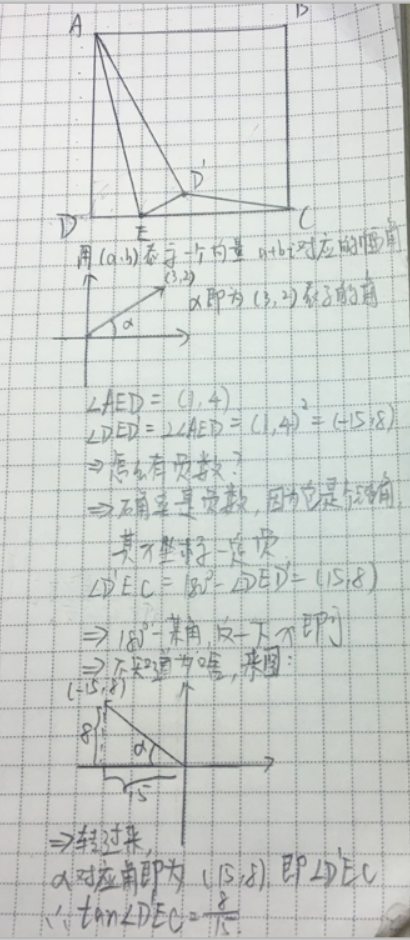 A
B
D'
D
E
C
用(a,b)表示一个向量 a+bi对应的幅角
(3,2)
α
α即为(3,2)表示的角
∠AED = (1,4)
∠DED' = 2∠AED = (1,4)² = (-15,8)
⇒怎么有负数?
⇒
因为它是个钝角,
其
坐标
一定负
∠D'EC = 180°-∠DED' = (15,8)
⇒ 180°-某角,反一下
即可
⇒不知道为啥,来图:
(-15,8)
8
α
15
⇒转过来,
α对应角即为 (15,8), 即∠D'EC
∴ tan∠D'EC = 8/15